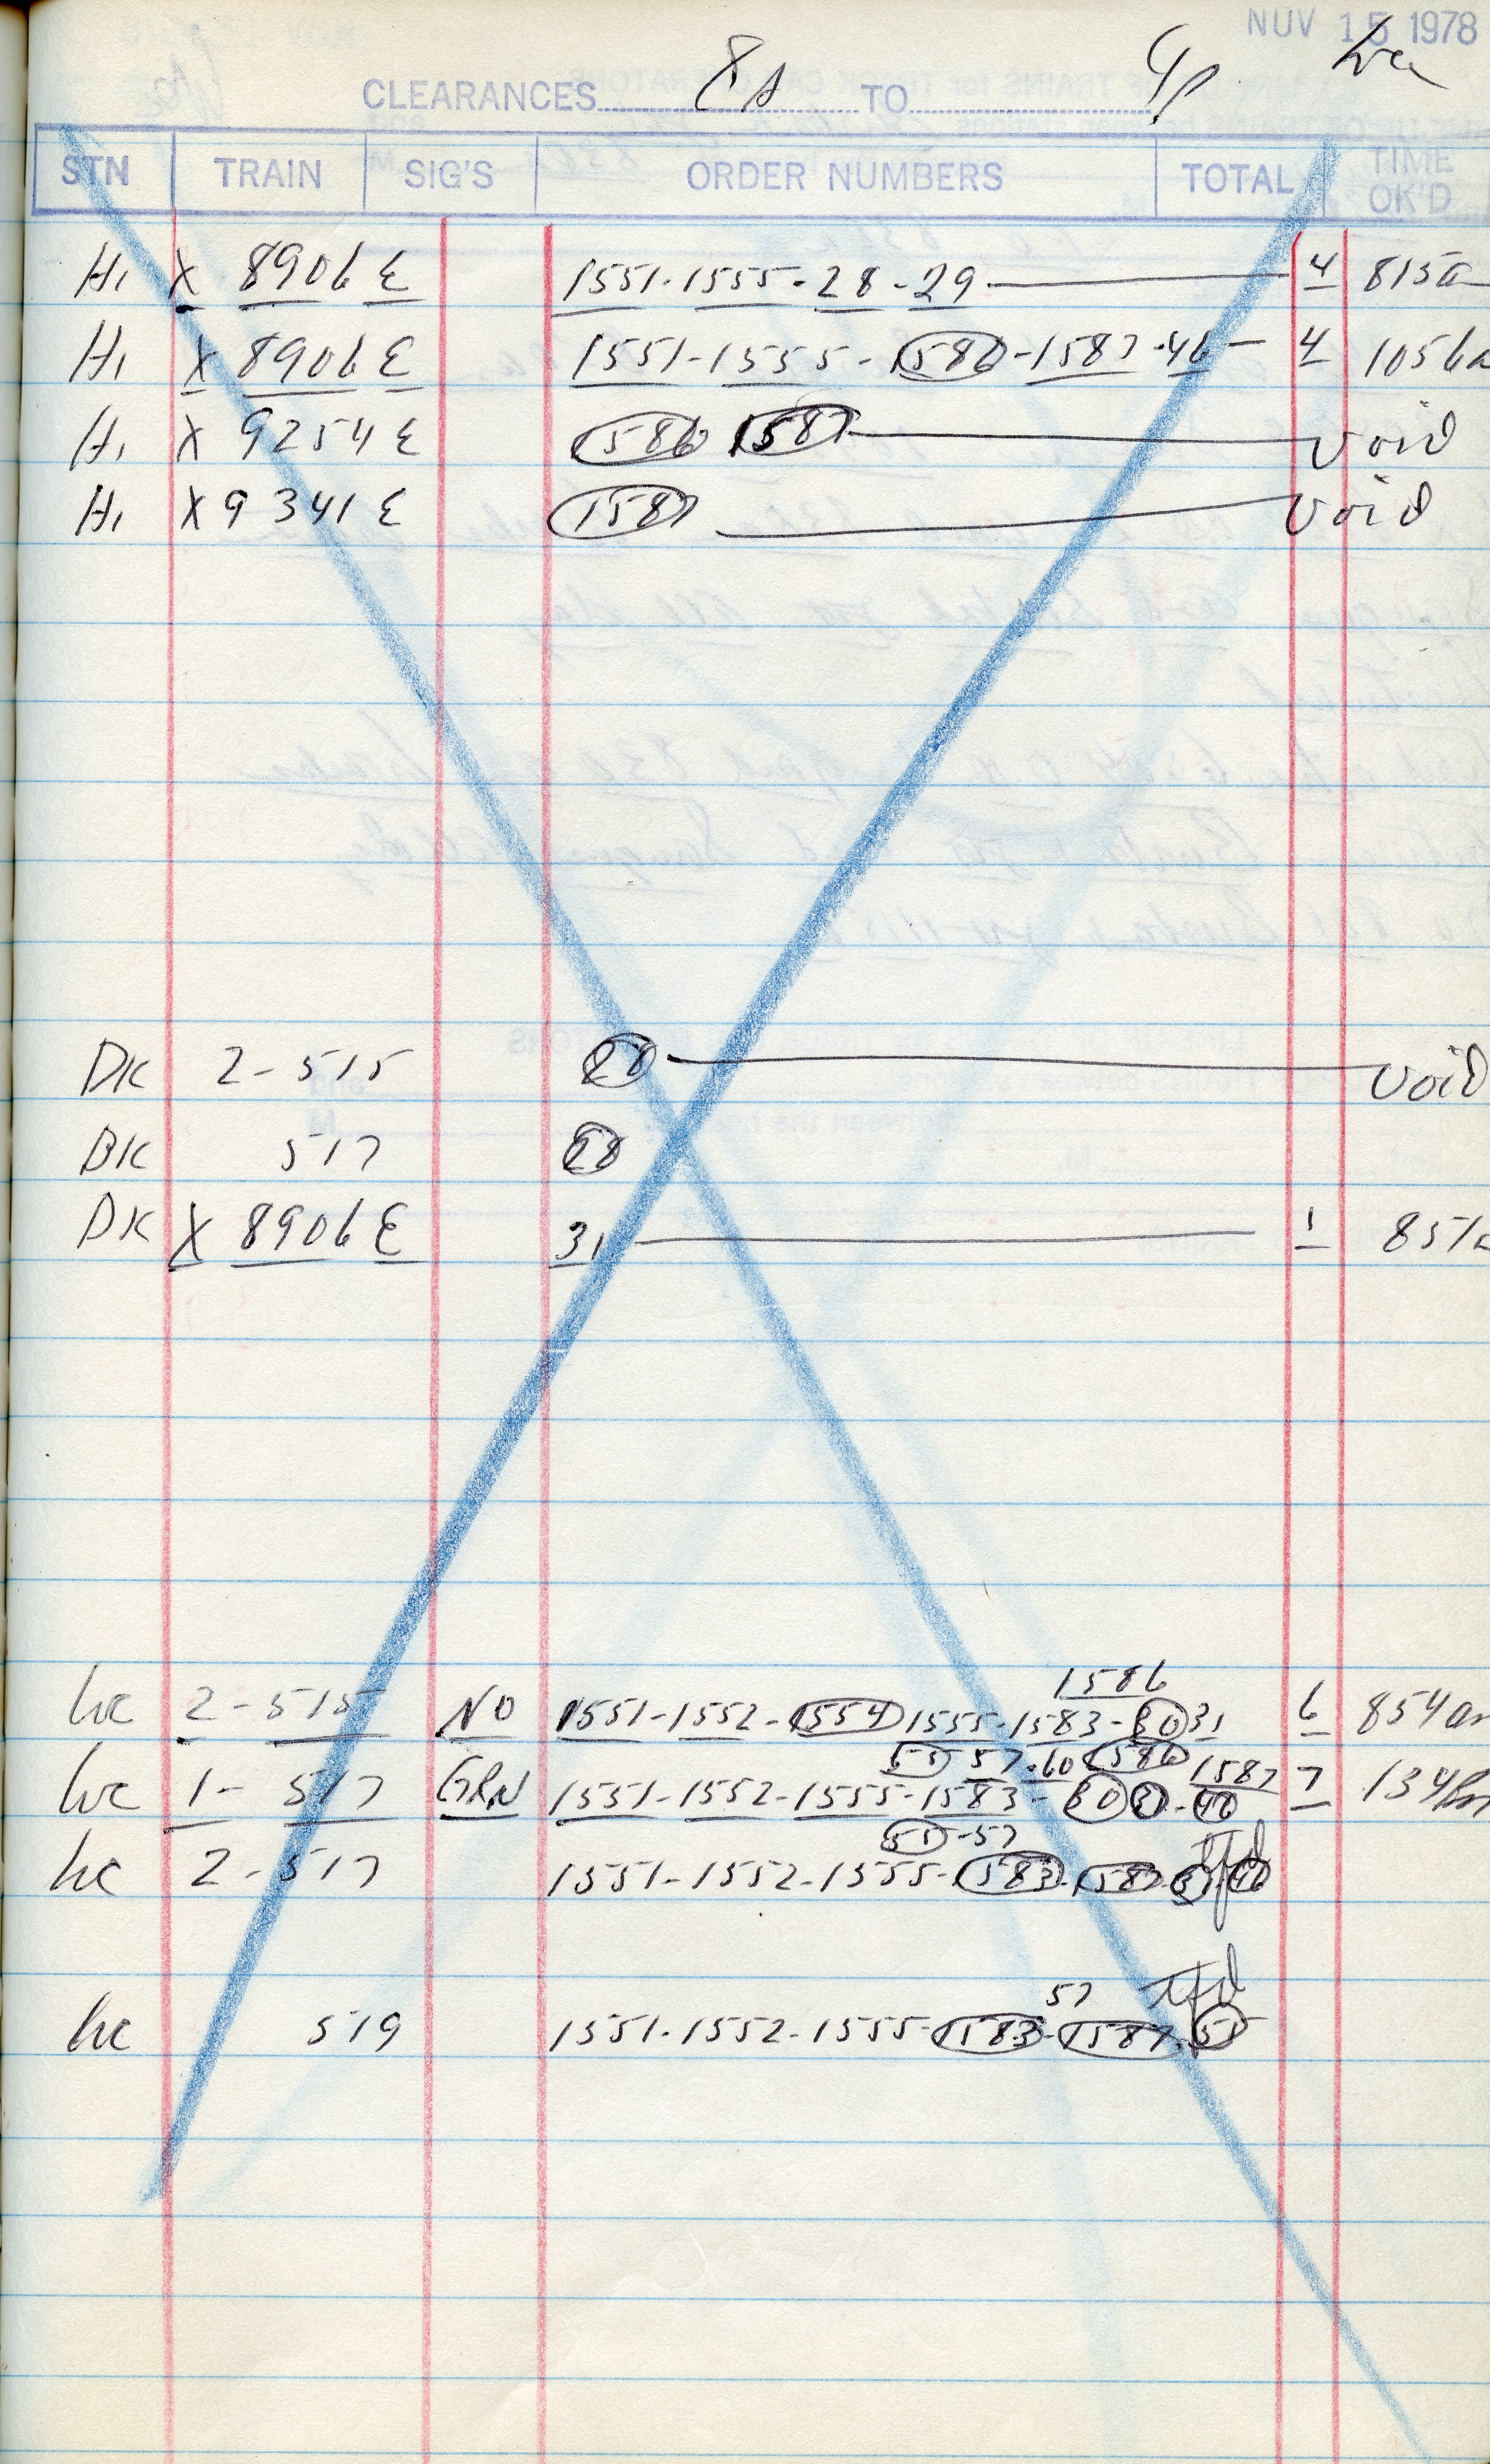 NOV 15 1978
CLEARANCES 8A TO 4p
STN TRAIN SIG'S ORDER NUMBERS TOTAL TIME OK'D
Hi X 8906 E 1551-1555-28-29 4 815a
Hi X 8906 E 1551-1555-1586-1587-46 4 1056a
Hi X 9254 E 1586 1587 void
Hi X 9341 E 1587 void
DK 2-515 28 void
BK 517 28
DK X 8906 E 31 1 851a
1586
hc 2-515 NO 1551-1552-1554 1555-1583-30 31 6 854am
51 57-60 1586 1587
hc 1-517 GRN 1551-1552-1555-1583-30 31-46 7 134pm
51-57 tfd
hc 2-517 1551-1552-1555-1583-1587-31-46
57 tfd
hc 519 1551-1552-1555-1583-1587-51